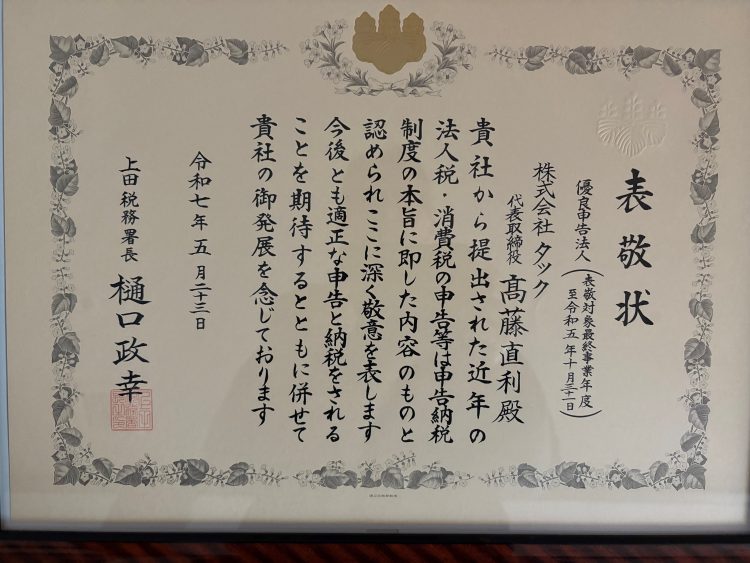 表敬状
優良申告法人(表敬対象最終事業年度
至令和五年十月三十一日)
株式会社タック
代表取締役 髙藤直利殿
貴社から提出された近年の
法人税・消費税の申告等は申告納税
制度の本旨に即した内容のものと
認められここに深く敬意を表します
今後とも適正な申告と納税をされる
ことを期待するとともに併せて
貴社の御発展を念じております
令和七年五月二十三日
上田税務署長 樋口政幸